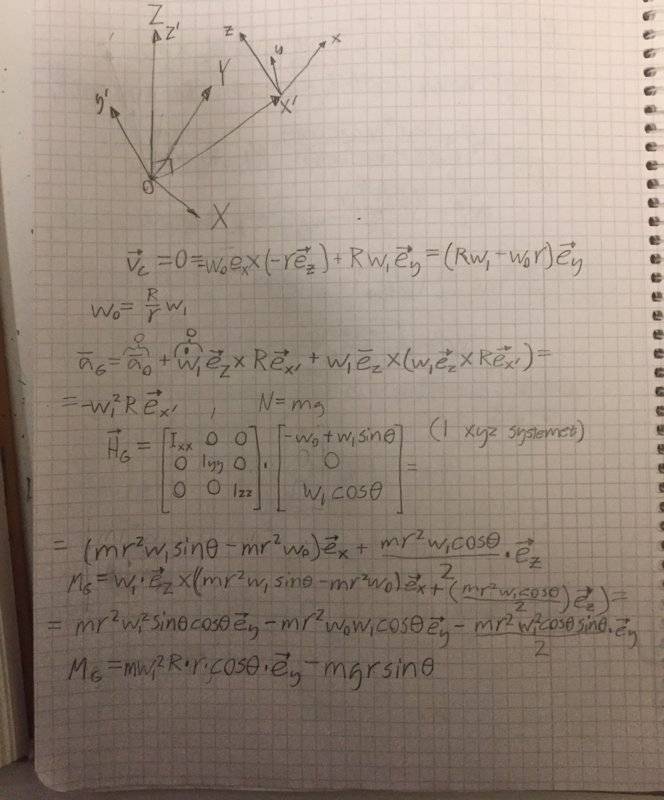 Z
Z'
z
y
x
Y
y'
X'
O
X
v⃗_c = 0 = w₀e_x×(-re⃗_z) + Rw₁e⃗_y = (Rw₁-w₀r)e⃗_y
w₀ = R/r w₁
ā_G = ā₀ (0) + ẇ₁ (0) e⃗_Z × Re⃗_x' + w₁ē_z×(w₁e⃗_z×Re⃗_x') =
= -w₁²Re⃗_x' , N=mg
H⃗_G = [I_xx 0 0; 0 I_yy 0; 0 0 I_zz] · [-w₀+w₁sinθ; 0; w₁cosθ] = (I xyz systemet)
= (mr²w₁sinθ - mr²w₀)e⃗_x + mr²w₁cosθ/2 · e⃗_z
M_G = w₁·e⃗_Z×((mr²w₁sinθ-mr²w₀)e⃗_x + (mr²w₁cosθ/2)e⃗_z) =
= mr²w₁²sinθcosθe⃗_y - mr²w₀w₁cosθe⃗_y - mr²w₁²cosθsinθ/2 · e⃗_y
M_G = mw₁²R·r·cosθ·e⃗_y - mgrsinθ